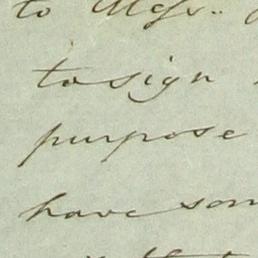 to Messrs.
to sign
purpose
have som